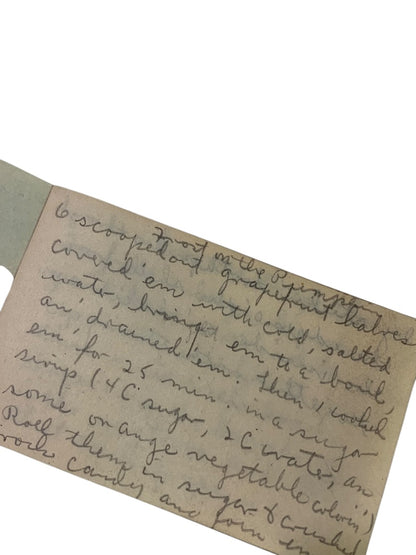 Frost on the Pumpkin
6 scooped out grapefruit halves
covered 'em with cold, salted
water, bring 'em to a boil,
an' drained 'em. Then I cooked
em' for 25 min. in a sugar
sirup (4 C sugar, 2 C water, an
some orange vegetable colorin')
Roll them in sugar & crushed
rock candy and join em